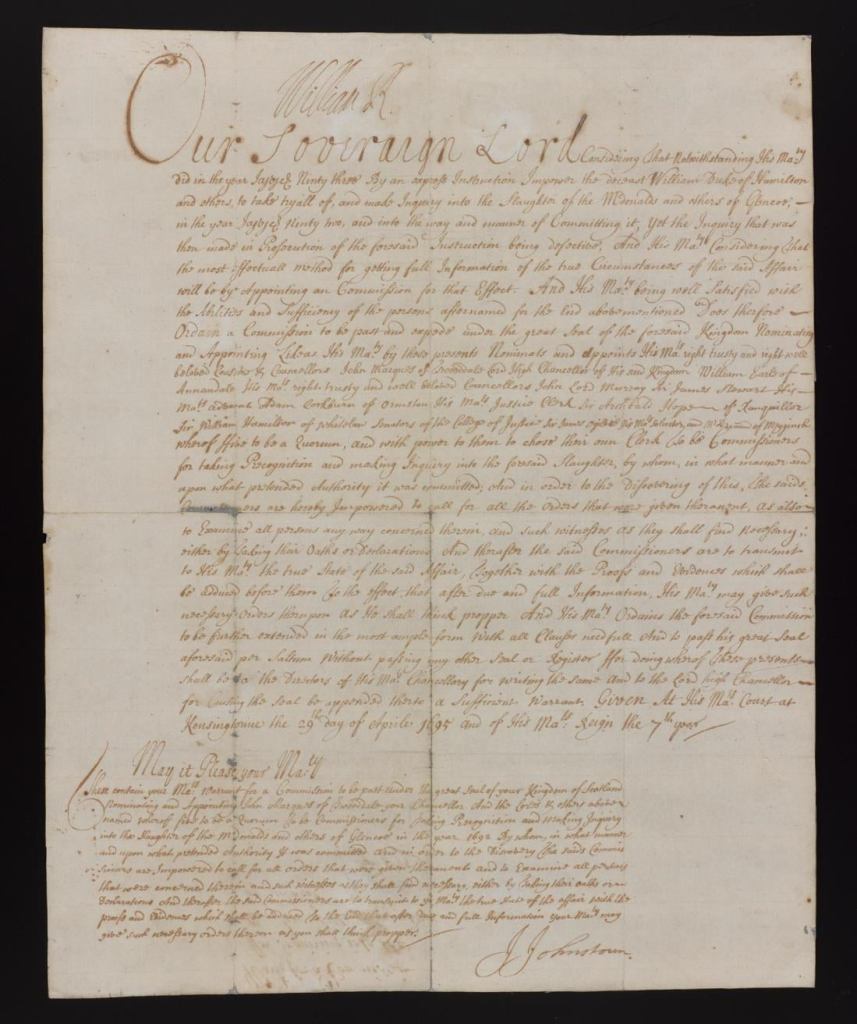 William R.
Our Soveraign Lord Considering That Notwithstanding His Maty
Did in the year Jajvjc & Ninty three By an express Instruction Impower the deceast William Duke of Hamilton
and others, to take tryall of, and make Inquiry into the Slaughter of the McDonalds and others of Glencoe,
in the year Jajvjc & Ninty two, and into the way and manner of Committing it, Yet the Inquiry that was
then made in Prosecution of the foresaid Instruction being defective, And His Maty Considering that
the most effectuall method for getting full Information of the true Circumstances of the said Affair
will be by Appointing an Commission for that Effect. And His Maty being well Satisfied with
the Abilities and Sufficiency of the persons afternamed for the End abovementioned Does therfore
Ordain a Commission to be past and exped under the great Seal of the foresaid Kingdom Nominating
and Appointing Likeas His Maty by these presents Nominats and Appoints His Mats right trusty and right well
beloved Cousins & Councellors John Marques of Tweeddale Lord High Chancellor of His said Kingdom William Earle of
Annandale His Mats right trusty and well beloved Councellors John Lord Murray Sir James Stewart His
Mats advocat Adam Cockburn of Ormston His Mats Justice Clerk Sir Archbald Hope of Ranquillor
Sir William Hamilton of Whitelaw Senators of the Colledge of Justice Sir James Ogilvie His Mats Solicitor, and of
wherof ffive to be a Quorum, and with power to them to chose their own Clerk To be Commissioners
for taking Precognition and making Inquiry into the foresaid Slaughter, by whom, in what manner and
upon what pretended Authority it was committed; And in order to the Discovering of this, The saids
Commissioners are hereby Impowered to call for all the Orders that were given theranent, As also
to Examine all persons any way concerned therein, and such witnesses as they shall find Necessary;
either by Taking their Oaths or Declarations And therafter the said Commissioners are to transmit
to His Maty the true State of the said Affair, Together with the Proofs and Evidences which shall
be adduced before them To the effect that after due and full Information, His Maty may give such
necessary Orders therupon as He shall think propper And His Maty Ordains the foresaid Commission
to be further extended in the most ample form With all Clauses needfull And to past his great Seal
aforesaid per Saltum Without passing any other Seal or Register ffor doing wherof These presents
shall be to the Directors of His Mats Chancellary for writing the same And to the Lord high Chancellor
for Causing the seal be appended therto a Sufficient Warrant. Given At His Mats Court at
Kensingtoune the 29th day of Aprile 1695 and of His Mats Reign the 7th year
May it Please your Maty
These contain your Mats Warrant for a Commission to be past under the great Seal of your Kingdom of Scotland
Nominating and Appointing John Marques of Tweeddale your Chancellor And the Lords & others above
named wherof five to be a Quorum To be Commissioners for Taking Precognition and Making Inquiry
into the Slaughter of the McDonalds and others of Glencoe in the year 1692 By whom, in what manner
and upon what pretended Authority It was committed and in order to the Discovery The saids Commis
sioners are Impowered to call for all orders that were given theranent and to Examine all persons
that were concerned therein and such witnesses as they shall find necessary, either by Taking their oaths or
Declarations And therafter the said Commissioners are to transmit to yr Maty the true State of the affair with the
proofs and Evidences which shall be adduced To the End that after due and full Information your Maty may
give such necessary orders therein as you shall think propper.
J Johnstoun.